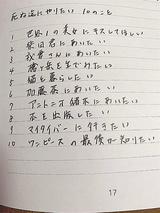 死ぬ迄にやりたい 10のこと
1 世界1の美女にキスしてほしい
2 柴田君にあいたい
3 我妻さんにあいたい
4 槍ヶ岳を生でみたい
5 猫と暮らしたい
6 加藤茶にあいたい
7 アントニオ猪木にあいたい
8 本を出版したい
9 スカイダイバーに行きたい
10 ワンピースの最後が知りたい
17